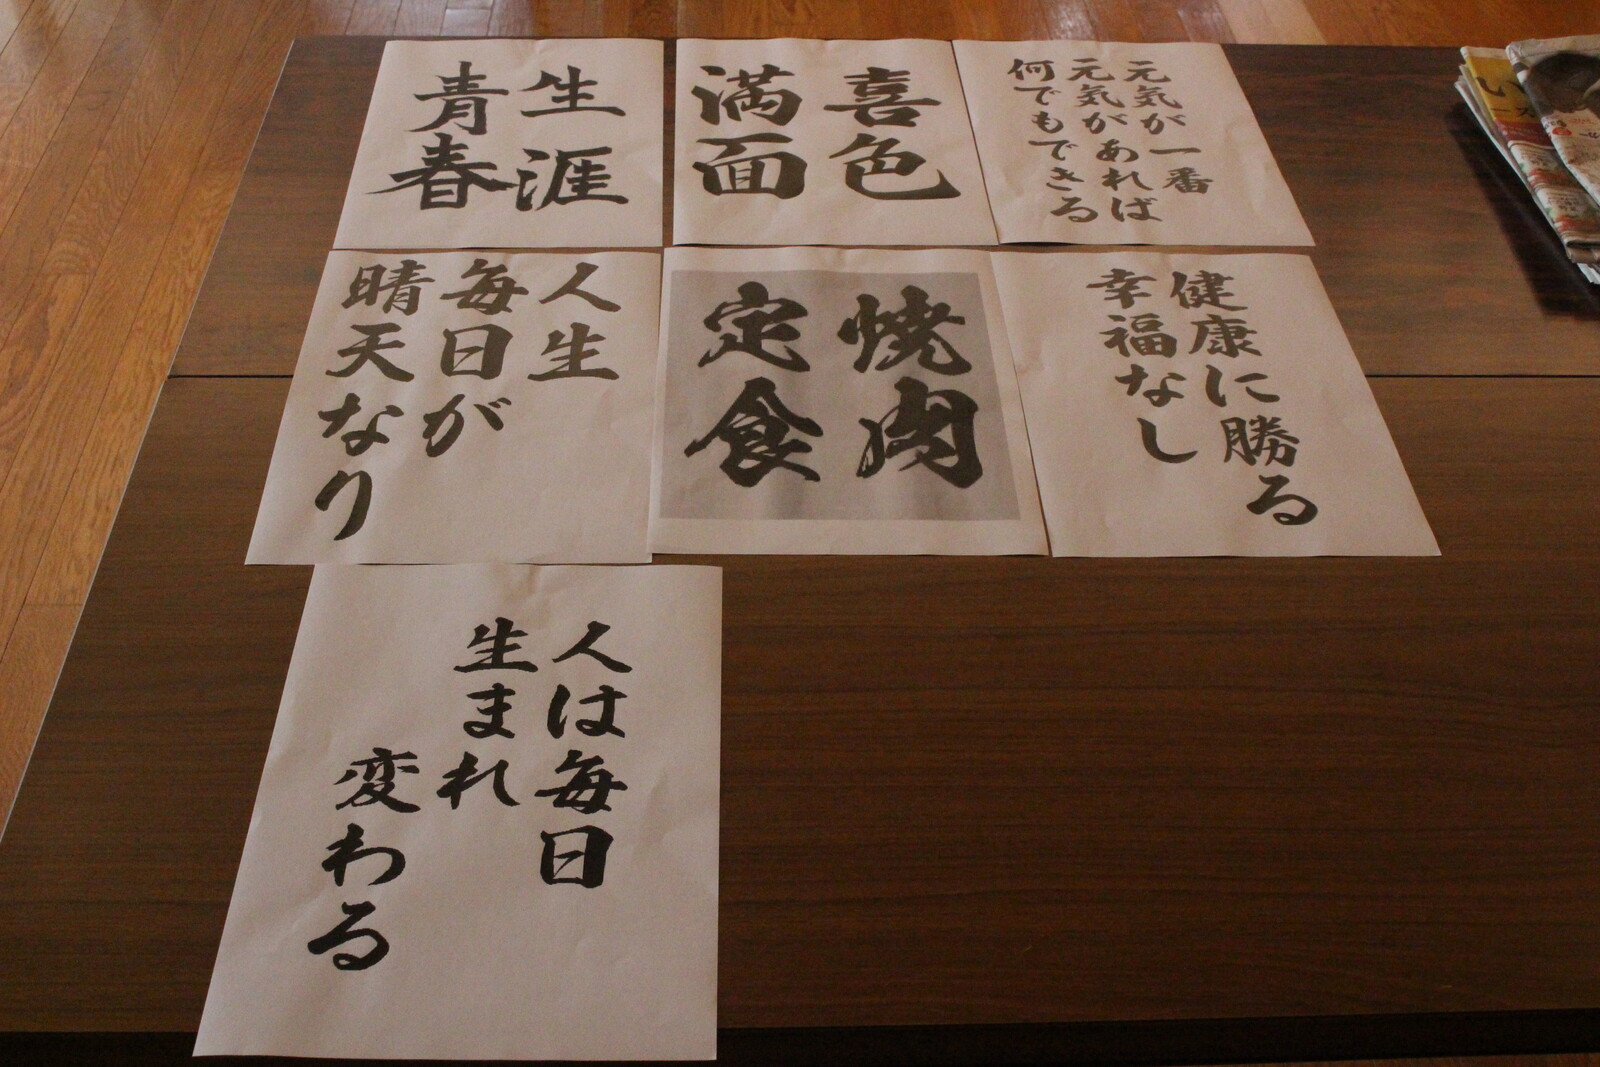 生涯
青春
喜色
満面
元気が一番
元気があれば
何でもできる
人生
毎日が
晴天なり
焼肉
定食
健康に勝る
幸福なし
人は毎日
生まれ
変わる